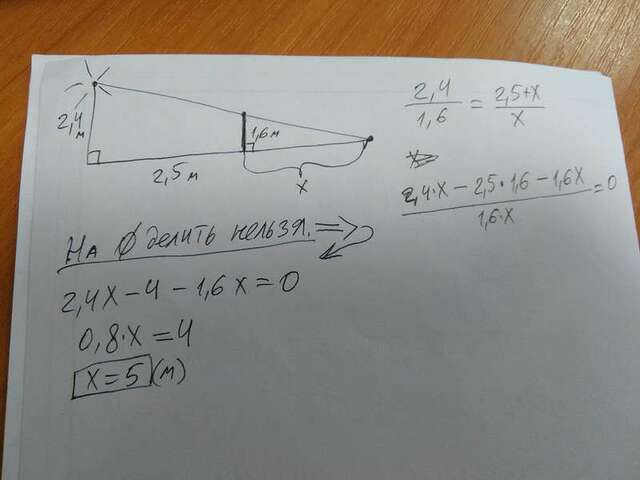 2,4 м
1,6 м
2,5 м
x
2,4/1,6 = 2,5+x/x
2,4·x − 2,5·1,6 − 1,6x/1,6·x = 0
На 0 делить нельзя. =>
2,4x − 4 − 1,6x = 0
0,8·x = 4
x = 5 (м)